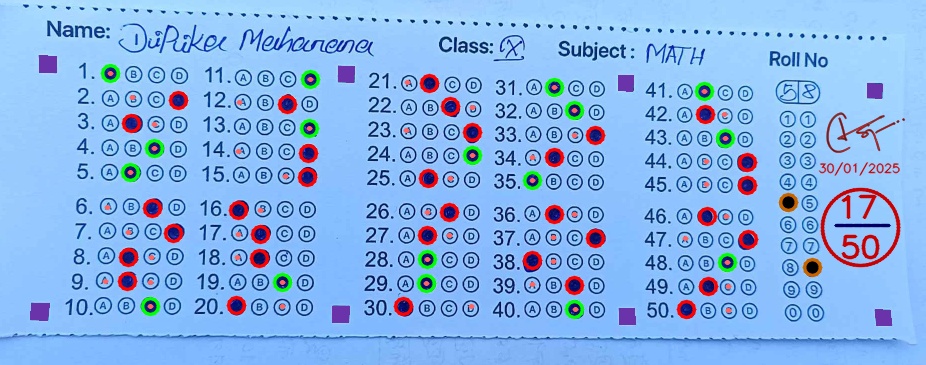 Name: DiPika Meharana Class: X Subject: MATH Roll No
1. B C D
2. A B C
3. A C D
4. A B D
5. A C D
6. A B D
7. A B C
8. A C D
9. A C D
10. A B D
11. A B C
12. A B D
13. A B C
14. A B C
15. A B C
16. B C D
17. A C D
18. A C D
19. A B D
20. B C D
21. A C D
22. A B D
23. A B C
24. A B C
25. A C D
26. A B D
27. A C D
28. A C D
29. A C D
30. B C D
31. A C D
32. A B D
33. A B C
34. A C D
35. B C D
36. A C D
37. A B C
38. B C D
39. A B D
40. A B D
41. A C D
42. A C D
43. A B D
44. A B C
45. A B C
46. A C D
47. A B C
48. A B D
49. A C D
50. B C D
5 8
1 1
2 2
3 3
4 4
5
6 6
7 7
8
9 9
0 0
30/01/2025
17
50